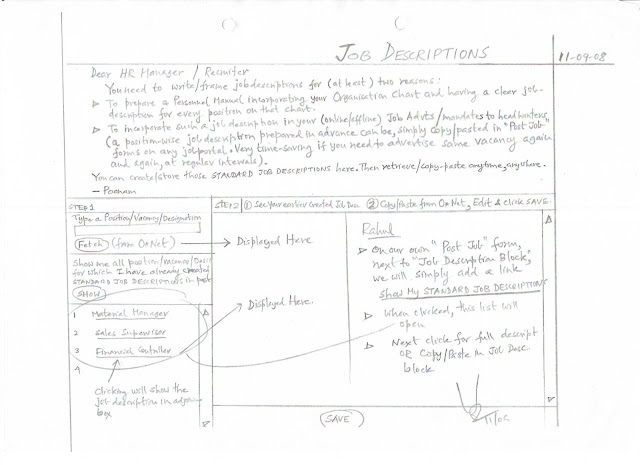 JOB DESCRIPTIONS
11-09-08
Dear HR Manager / Recruiter
You need to write/frame job descriptions for (at least) two reasons:
To prepare a Personnel Manual incorporating your Organisation Chart and having a clear job-
description for every position on that chart.
To incorporate such a job description in your (online/offline) Job Advts/mandates to headhunters
(a position-wise job description prepared in advance can be, simply copy/pasted in "Post Job"
forms on any jobportal. Very time-saving if you need to advertise same vacancy again
and again, at regular intervals).
You can create/store those STANDARD JOB DESCRIPTIONS here. Then retrieve/copy-paste anytime, anywhere.
- Poonam
STEP 1
Type a Position/Vacancy/Designation
Fetch (from OnNet) → Displayed Here
Show me all position/vacancy/
for which I have already created
STANDARD JOB DESCRIPTIONS in past
SHOW
1 Material Manager
2 Sales Supervisor
3 Financial Controller
4
Clicking will show the
job description in
box
STEP 2 ① See your earlier Created Job Desc. ② Copy/Paste from OnNet, Edit & click SAVE.
Displayed Here.
Rahul
On our own "Post Job" form,
next to "Job Description Block",
we will simply add a link
Show My STANDARD JOB DESCRIPTIONS
When clicked, this list will
open
Next click for full descript
OR Copy/Paste in Job Desc
block
SAVE